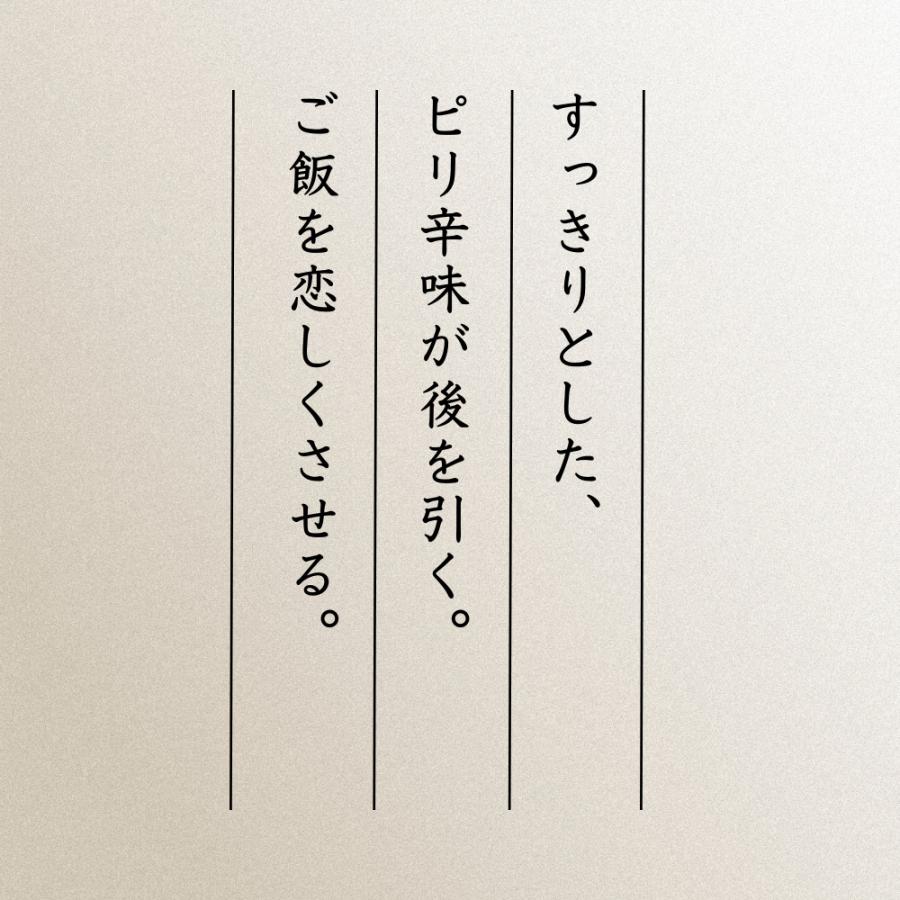 すっきりとした、
ピリ辛味が後を引く。
ご飯を恋しくさせる。